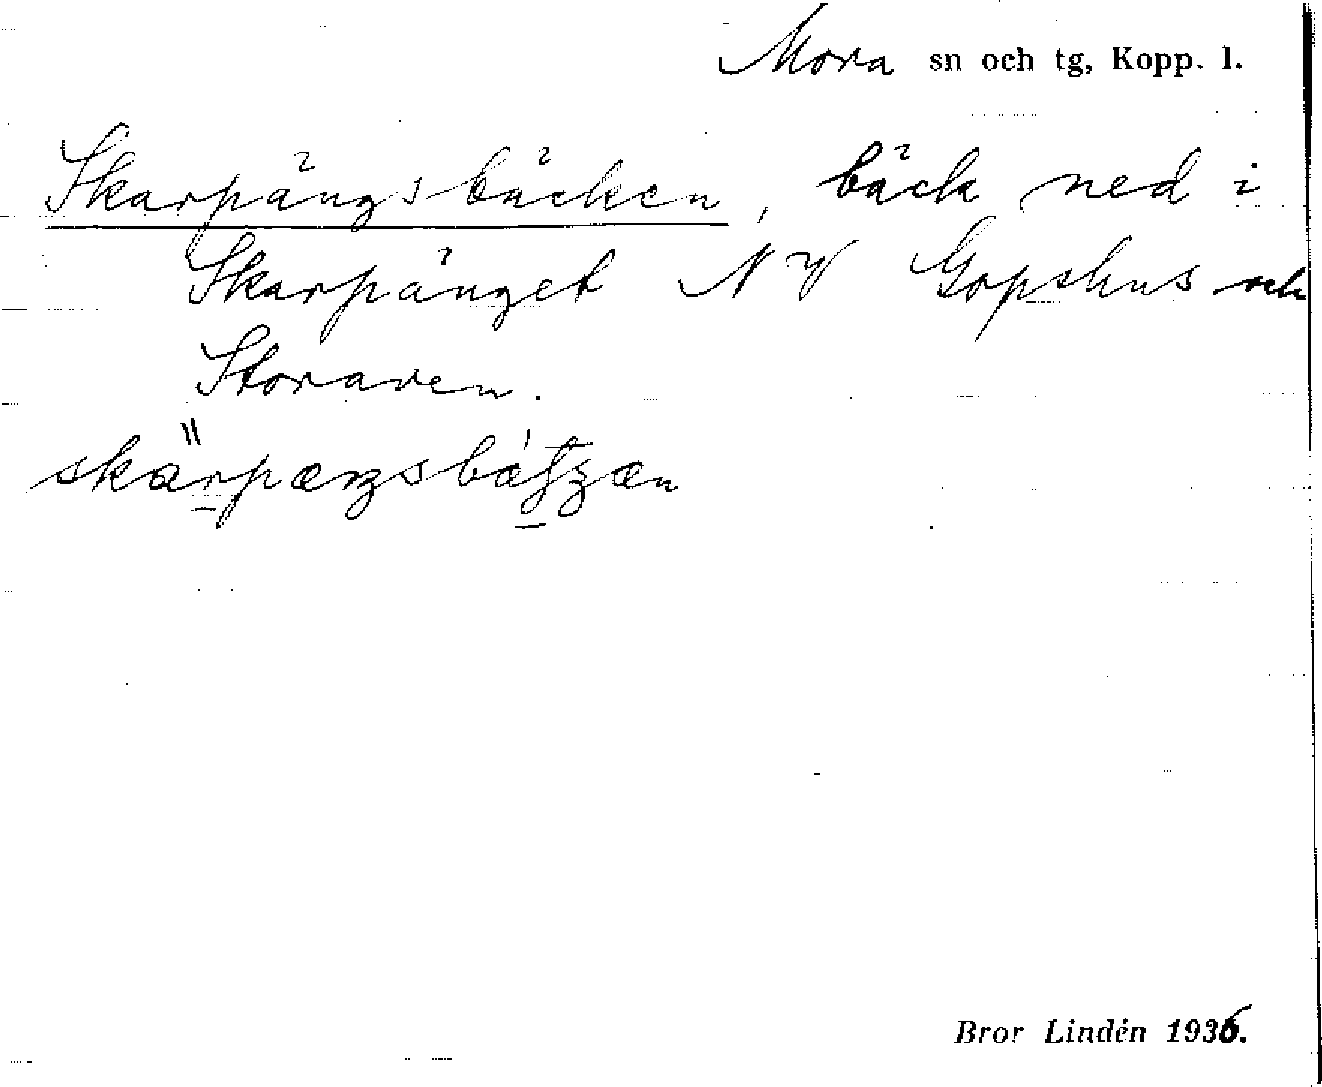 Mora sn och tg, Kopp. l.
Skarpängsbäcken, bäck ned i
Skarpänget NV Gopshus och
Storaven.
Bror Lindén 1936.